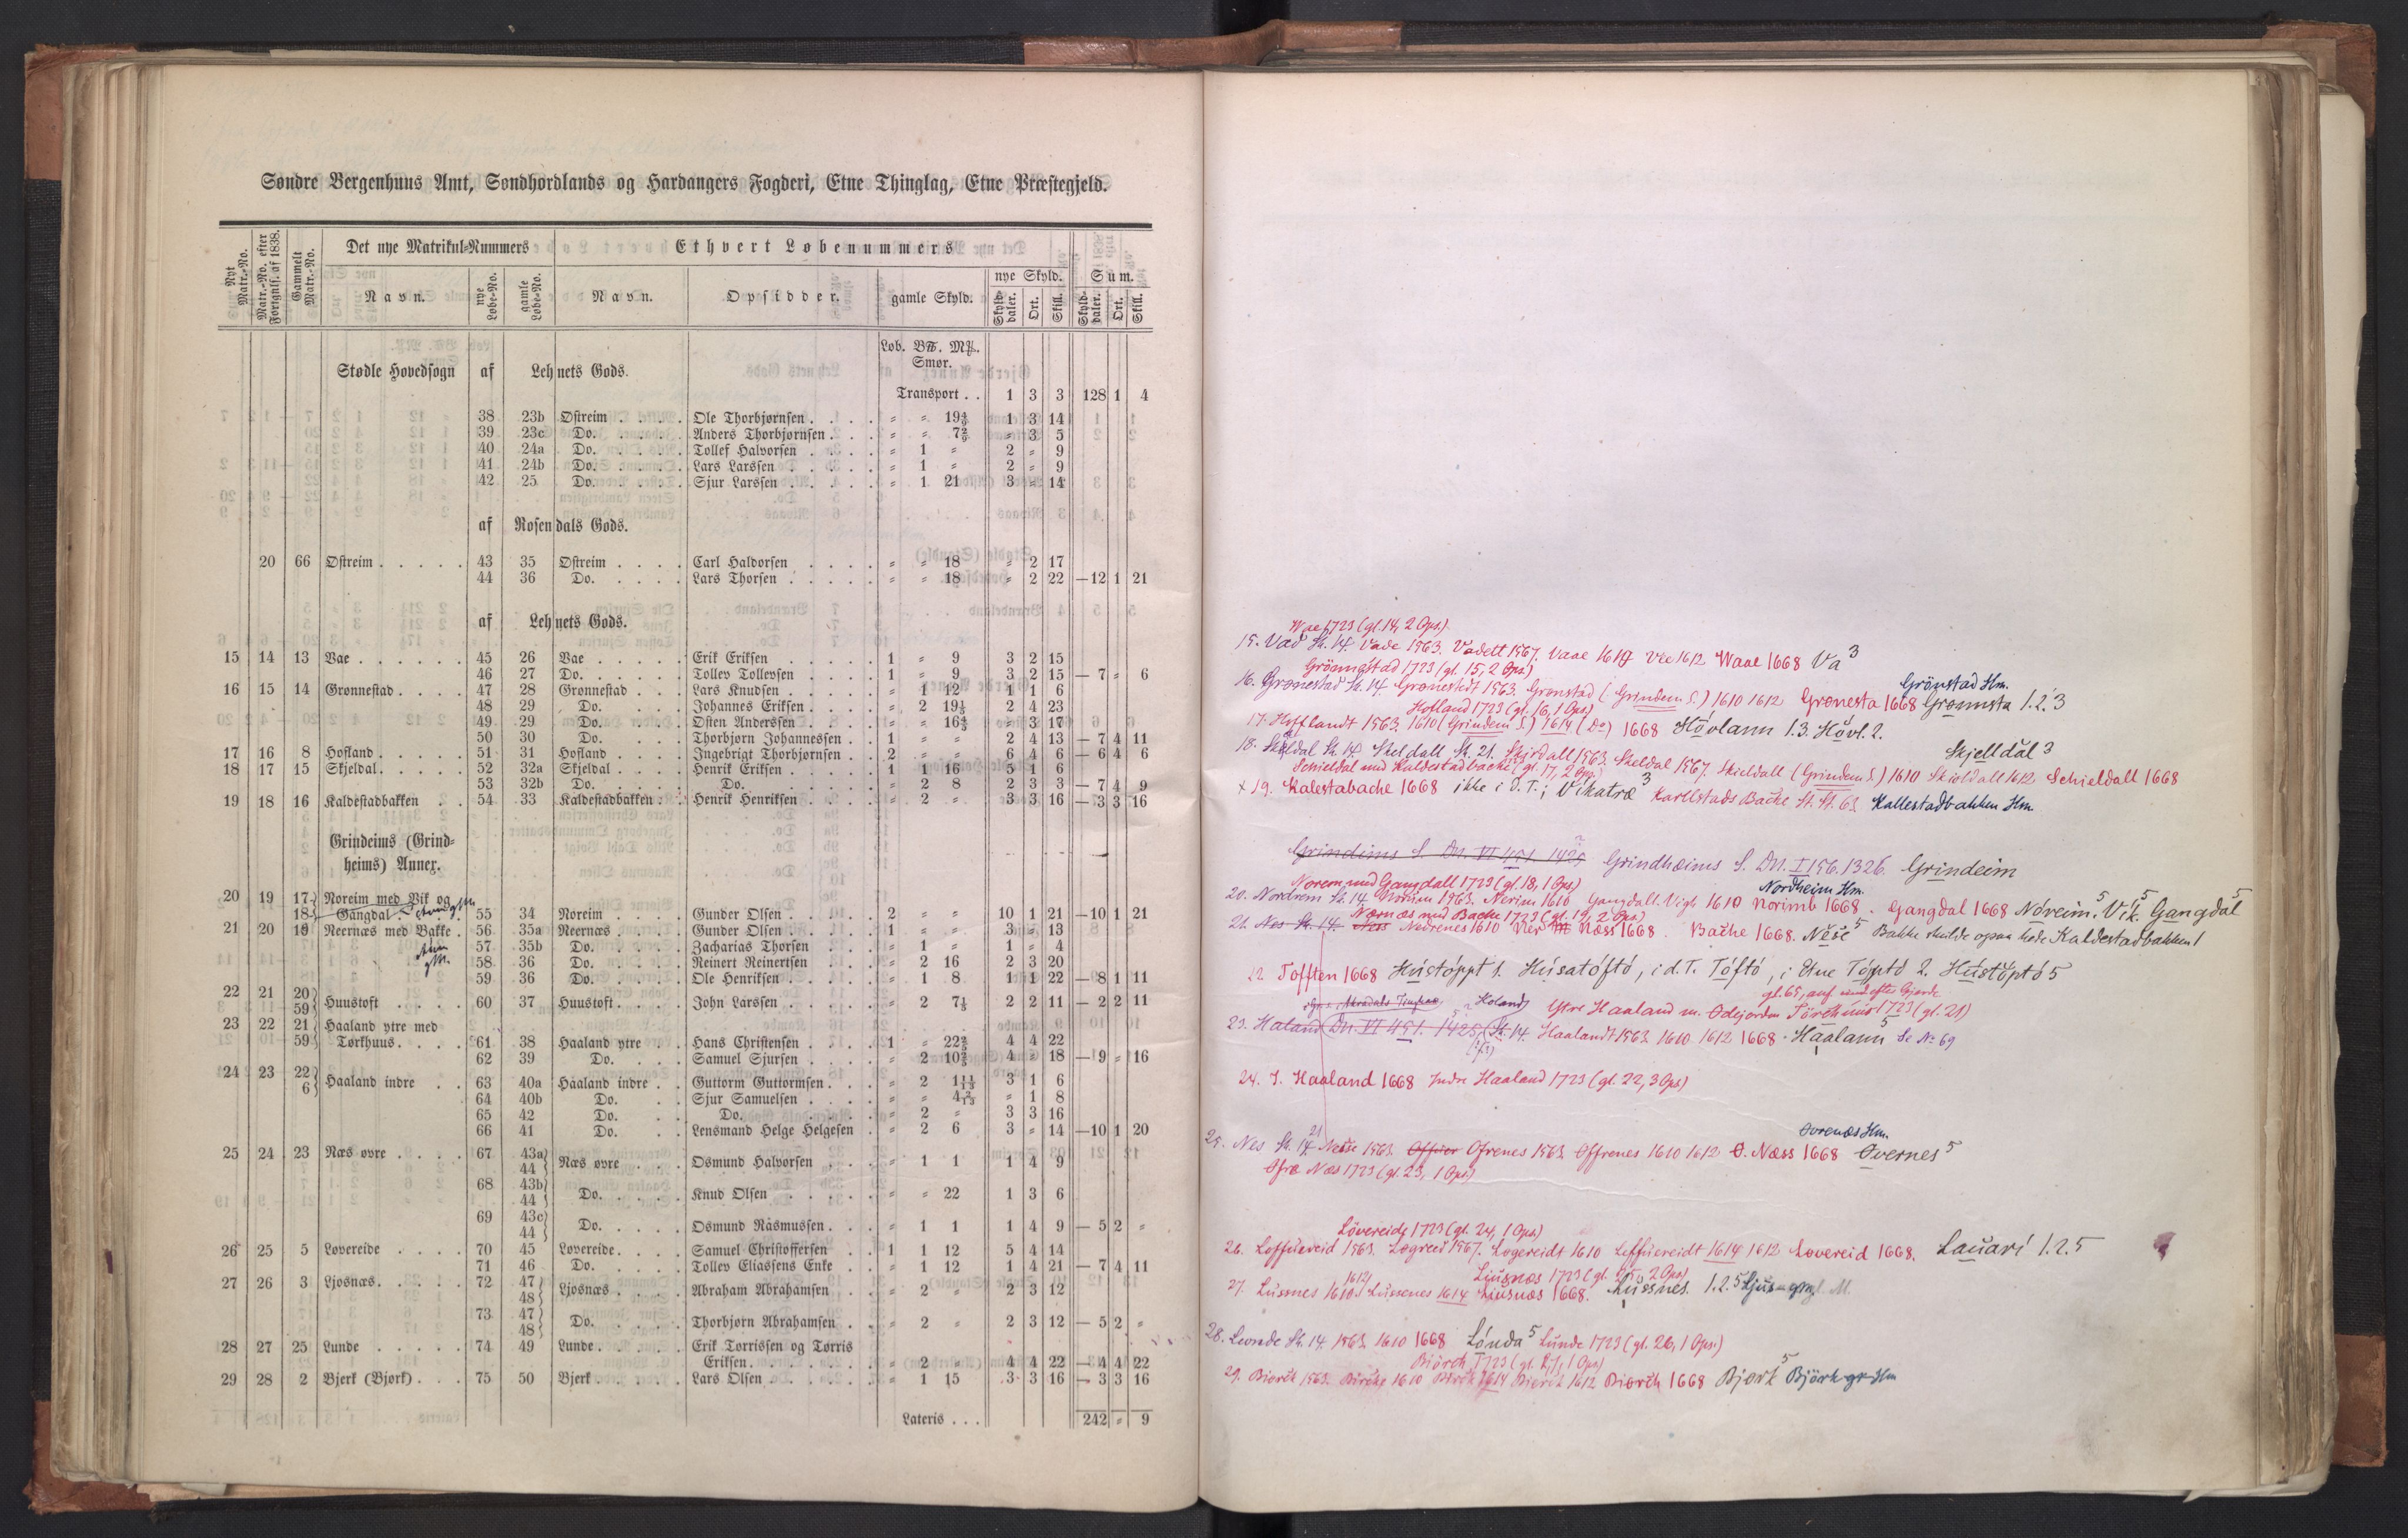 Søndre Bergenhuus Amt, Søndhordlands og Hardangers Fogderi, Etne Thinglag, Etne Præstegjeld.
Nyt Matr.-No. Matr.-No. efter Forteghlf. af 1838. Gammelt Matr.-No. Det nye Matrikul-Nummers Ethvert Løbenummers
Navn. nye Løbe-No. gamle Løbe-No. Navn. Opsidder. gamle Skyld. nye Skyld. Skylddaler. Ort. Skill. Sum. Skylddaler. Ort. Skill.
Løb. B℔. M℔.
Stødle Hovedsogn af Lehnets Gods. Smør.
Transport . . 1 3 3 128 1 4
38 23b Østreim . . . . Ole Thorbjørnsen . . . „ „ 19⅘ 1 3 14
39 23c Do. . . . . Anders Thorbjørnsen . . . „ „ 7⅖ „ 3 5
40 24a Do. . . . . Tollef Halvorsen . . . . „ 1 „ 2 „ 9
41 24b Do. . . . . Lars Larssen . . . . . „ 1 „ 2 „ 9
42 25 Do. . . . . Sjur Larssen . . . . . „ 1 21 3 „ 14
af Rosendals Gods.
20 66 Østreim . . . . . 43 35 Østreim . . . . Carl Haldorsen . . . . „ „ 18 „ 2 17
44 36 Do. . . . . Lars Thorsen . . . . . „ „ 18 „ 2 22 — 12 1 21
af Lehnets Gods.
15 14 13 Vae . . . . . . 45 26 Vae . . . . . Erik Eriksen . . . . . 1 „ 9 3 2 15
46 27 Do. . . . . . Tollev Tollevsen . . . . 1 „ 9 3 2 15 — 7 „ 6
16 15 14 Grønnestad . . . . 47 28 Grønnestad . . . Lars Knudsen . . . . . „ 1 12 1 1 6
48 29 Do. . . . Johannes Eriksen . . . . „ 2 19⅕ 2 4 23
49 29 Do. . . . Østen Anderssen . . . . „ „ 16⅘ „ 3 17
50 30 Do. . . . Thorbjørn Johannessen . . 1 „ „ 2 4 13 — 7 4 11
17 16 8 Hofland . . . . . 51 31 Hofland . . . . Ingebrigt Thorbjørnsen . . 2 „ „ 6 4 6 — 6 4 6
18 17 15 Skjeldal . . . . . 52 32a Skjeldal . . . . Henrik Eriksen . . . . . 1 1 16 5 1 6
53 32b Do. . . . . Do. . . . . . „ 2 8 2 3 3 — 7 4 9
19 18 16 Kaldestadbakken . . 54 33 Kaldestadbakken . . Henrik Henriksen . . . . „ 2 „ 3 3 16 — 3 3 16
Grindeims (Grind-
heims) Annex.
20 19 17 Noreim med Vik og
18 Gangdal . . . 55 34 Noreim . . . . Gunder Olsen . . . . . 2 „ „ 10 1 21 — 10 1 21
21 20 19 Neernæs med Bakke . 56 35a Neernæs . . . . Gunder Olsen . . . . . 1 „ „ 3 „ 13
57 35b Do. . . . . Zacharias Thorsen . . . „ 1 „ 1 „ 4
58 36 Do. . . . . Reinert Reinertsen . . . „ 2 16 2 3 20
59 36 Do. . . . . Ole Henriksen . . . . . „ 1 8 1 1 22 — 8 1 11
22 21 20 59 Huustoft . . . . 60 37 Huustoft . . . . John Larssen . . . . . „ 2 7⅕ 2 2 11 — 2 2 11
23 22 21 Haaland ytre med
59 Tørkhuus . . . . 61 38 Haaland ytre . . Hans Christensen . . . . 1 „ 22⅖ 4 4 22
62 39 Do. . . Samuel Sjursen . . . . „ 2 10⅖ 4 „ 18 — 9 „ 16
24 23 22 6 Haaland indre . . 63 40a Haaland indre . . Guttorm Guttormsen . . . „ 2 1 11/13 3 1 6
64 40b Do. . . Sjur Samuelsen . . . . „ „ 4 2/13 „ 1 8
65 42 Do. . . Do. . . . . „ 2 „ 3 3 16
66 41 Do. . . Lensmand Helge Helgesen . „ 2 6 3 „ 14 — 10 1 20
25 24 23 Næs øvre . . . . 67 43a 44 Næs øvre . . . . Osmund Halvorsen . . . „ 1 1 1 4 9
68 43b 44 Do. . . . . Knud Olsen . . . . . „ „ 22 1 3 6
69 43c 44 Do. . . . . Osmund Rasmussen . . . „ 1 1 1 4 9 — 5 2 „
26 25 5 Løvereide . . . . 70 45 Løvereide . . . . Samuel Christoffersen . . 1 1 12 5 4 14
71 46 Do. . . . . Tollev Eliassens Enke . . „ 1 12 1 4 21 — 7 4 11
27 26 3 Ljosnæs . . . . . 72 47 48 Ljosnæs . . . . Abraham Abrahamsen . . „ 2 „ 2 3 12
73 47 48 Do. . . . . Thorbjørn Abrahamsen . . „ 2 „ 2 3 12 — 5 2 „
28 27 25 Lunde . . . . . 74 49 Lunde . . . . . Erik Tørrissen og Tørris
Eriksen . . . . . . „ 2 „ 4 4 22 — 4 4 22
29 28 2 Bjerk (Bjørk) . . . 75 50 Bjerk . . . . . Lars Olsen . . . . . . „ 1 15 3 3 16 — 3 3 16
Lateris . . . 242 „ 9
Wae 1723 (gl. 14, 2 Ops.).
15. Vad St. 14. Vade 1563. Vadett 1567. Vaae 1614 Vee 1612 Waae 1668 Va 3
Grönnestad 1723 (gl. 15, 2 Ops.) Grönstad Hm.
16. Grønestad St. 14 Grønestedt 1563. Grønstad (Grindem S.) 1610 1612 Grønesta 1668 Grønnsta 1.2.3
Hofland 1723 (gl. 16, 1 Ops.)
17. Hofflandt 1563. 1610 (Grindem S.) 1614 (Do) 1668 Hövlann 1.3. Hövl. 2.
Skjelldal 3
18. Skeldal St. 14 Skeldall St. 21. Skiordall 1563. Skeldal 1567. Skieldall (Grindem S.) 1610 Skioldall 1612 Schieldall 1668
Schieldal med Kaldestadbache (gl. 17, 2 Ops.)
x 19. Kalestabache 1668 ikke i D. T.; Vikatræ 3 Karllstads Bache St. St. 63. Kallestadbakken Hm.
Grindims S. Dn. VI 451. 1425 Grindhæims S. Dn. I 156. 1326. Grindeim
Norem med Gangdall 1723 (gl. 18, 1 Ops.) Nordheim Hm.
20. Nordrem St. 14. Norim 1563. Nerim 1610 Gangdall. Vigh 1610 Norimb 1668. Gangdal 1668 Nóreim. 5 Vík. 5 Gangdal 5
Nærnæs med Backe 1723 (gl. 19, 2 Ops.)
21. Nes St. 14. Ness Nedrenes 1610 Ner Næss 1668. Bache 1668. Nese 5 Bakke skulde ogsaa hede Kaldestadbakken 1
22 Tofften 1668 Hústoppt 1. Húsatóftó, i d. T. Tóftó, i Etne Tóptó 2. Hústoptó 5
gl. 65, auf. ef
Holand Ytre Haaland m. Ødejorden Törchuus 1723 (gl. 21)
23. Haland (Dn. VI 451. 1425) St. 14. Haalandt 1563 1610 1612 1668. Haalann 5 Se No 69
24. I. Haaland 1668 Indre Haaland 1723 (gl. 22, 3 Ops)
Ovrenæs Hm.
25. Nes St. 14 21 Nesse 1563. Offrer Ofrenes 1563. Offrenes 1610 1612 Ø. Næss 1668 Øvernes 5
Öfre Næs 1723 (gl. 23, 1 Ops.)
Lövereide 1723 (gl. 24, 1 Ops.)
26. Loffüeveid 1563. Løgreed 1567. Løgereidt 1610 Leffüereidt 1614 1612 Løvereid 1668. Lauarí 1.2.5
1612 Liusnæs 1723 (gl. 25, 2 Ops)
27. Lüssnes 1610. Lüssenes 1614 Liusnæs 1668. Lussnes. 1.2.5 Ljus- gml. M.
28. Lunde St. 14. 1563. 1610 1668 Lónda 5 Lunde 1723 (gl. 26, 1 Ops.)
Biörch 1723 (gl. 27, 1 Ops)
29. Biørck 1563. Birche 1610 Birch 1614 Biørck 1612 Biørch 1668 Bjørk 5 Björk gr Hm